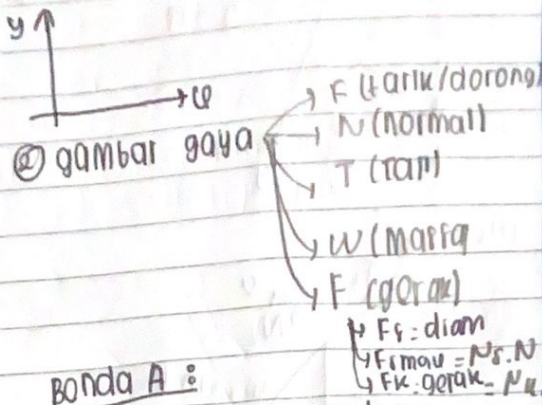 y
② gambar gaya
F (tarik/dorong)
N (normal)
T (tali)
W (massa
F (gerak)
Fs : diam
Fsmax = Ns.N
Fk : gerak = Nk
Benda A :